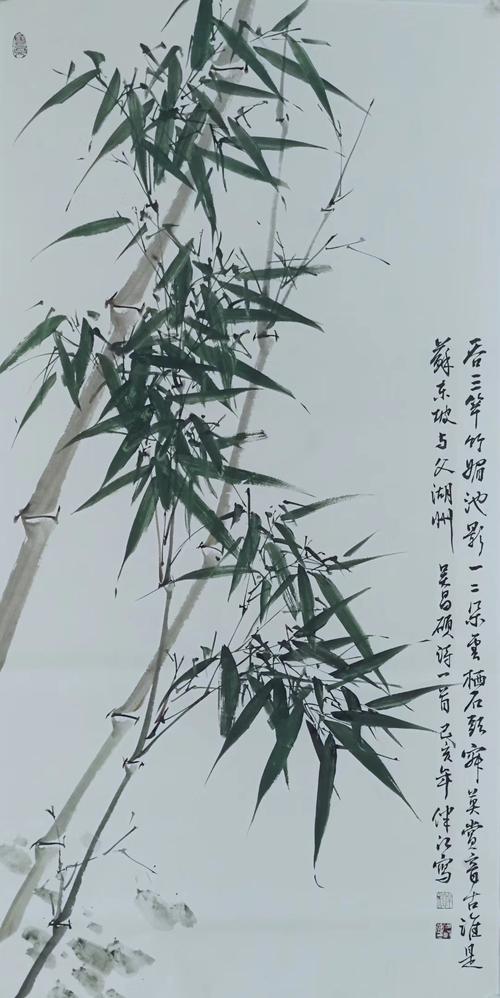 吞三竿竹媚池影一二朵雲栖石頭寂莫賞音古誰是
蘇東坡与文湖州 吴昌碩詩一首 己亥年 伴江寫